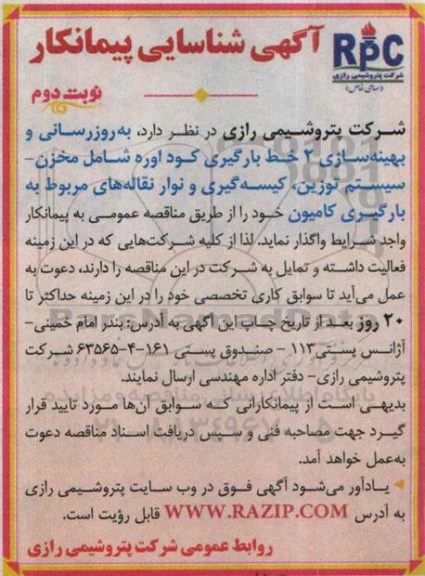 آگهی شناسایی پیمانکار
RPC
شرکت پتروشیمی رازی
(سهامی خاص)
نوبت دوم
شرکت پتروشیمی رازی در نظر دارد، به‌روزرسانی و
بهینه‌سازی ۲ خط بارگیری کود اوره شامل مخزن-
سیستم توزین، کیسه‌گیری و نوار نقاله‌های مربوط به
بارگیری کامیون خود را از طریق مناقصه عمومی به پیمانکار
واجد شرایط واگذار نماید. لذا از کلیه شرکت‌هایی که در این زمینه
فعالیت داشته و تمایل به شرکت در این مناقصه را دارند، دعوت به
عمل می‌آید تا سوابق کاری تخصصی خود را در این زمینه حداکثر تا
۲۰ روز بعد از تاریخ چاپ این آگهی به آدرس: بندر امام خمینی-
آژانس پستی ۱۱۳ - صندوق پستی ۱۶۱-۴-۶۳۵۶۵ شرکت
پتروشیمی رازی- دفتر اداره مهندسی ارسال نمایند.
بدیهی است از پیمانکارانی که سوابق آن‌ها مورد تایید قرار
گیرد جهت مصاحبه فنی و سپس دریافت اسناد مناقصه دعوت
به‌عمل خواهد آمد.
یادآور می‌شود آگهی فوق در وب سایت پتروشیمی رازی
به آدرس WWW.RAZIP.COM قابل رؤیت است.
روابط عمومی شرکت پتروشیمی رازی